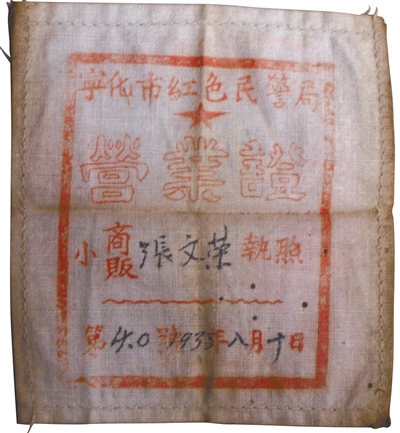 宁化市紅色民警局
營業證
小商販張文荣執照
第4.0號1933年八月十日